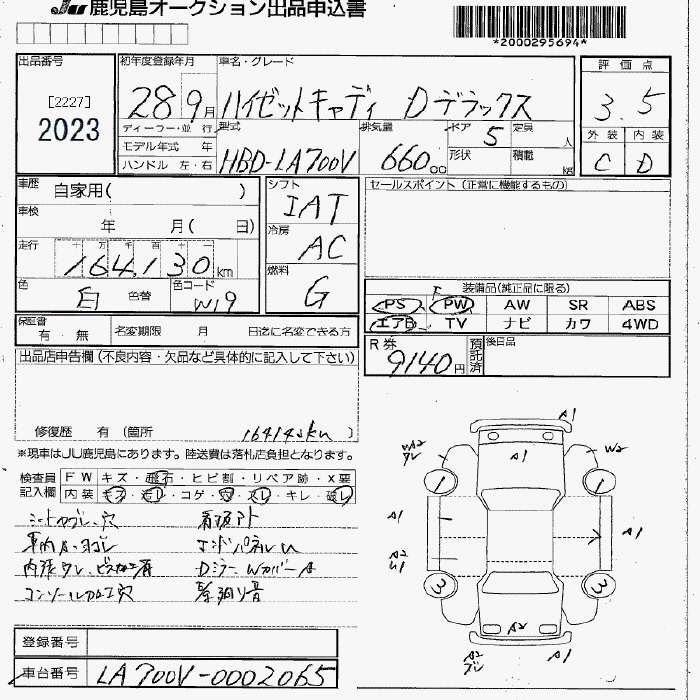 JU 鹿児島オークション出品申込書
*2000295694*
出品番号
[2227]
2023
初年度登録年月
28 9月
車名・グレード
ハイゼットキャディ Dデラックス
評価点
3.5
外装 内装
C D
ディーラー・並行
モデル年式 年
ハンドル 左・右
型式
HBD-LA700V
排気量
660 cc
ドア 5
形状
定員 人
積載 kg
車歴 自家用( )
車検 年 月( 日)
走行 十 万 千 百 十 一
164,130 km
色 白 色替
色コード W19
シフト
IAT
冷房
AC
燃料
G
セールスポイント (正常に機能するもの)
装備品(純正品に限る)
PS PW AW SR ABS
エアB TV ナビ カワ 4WD
保証書 有・無
名変期限 月 日迄に名変できる方
R券 9140円
預託済
後日品
出品店申告欄(不良内容・欠品など具体的に記入して下さい)
修復歴 有 (箇所 )
164142km
※現車はJU鹿児島にあります。陸送費は落札店負担となります。
検査員記入欄
FW キズ・飛石・ヒビ割・リペア跡・X要
内装 キズ・汚レ・コゲ・穴・スレ・キレ・破レ
シートヨゴレ、穴 看板アト
車内キズ・ヨゴレ エンドパネルU
コンソール加工穴
A1
A2
W2
1
1
A1
A2
U1
A1
3
3
A2
A2
A1
登録番号
車台番号 LA700V-0002065